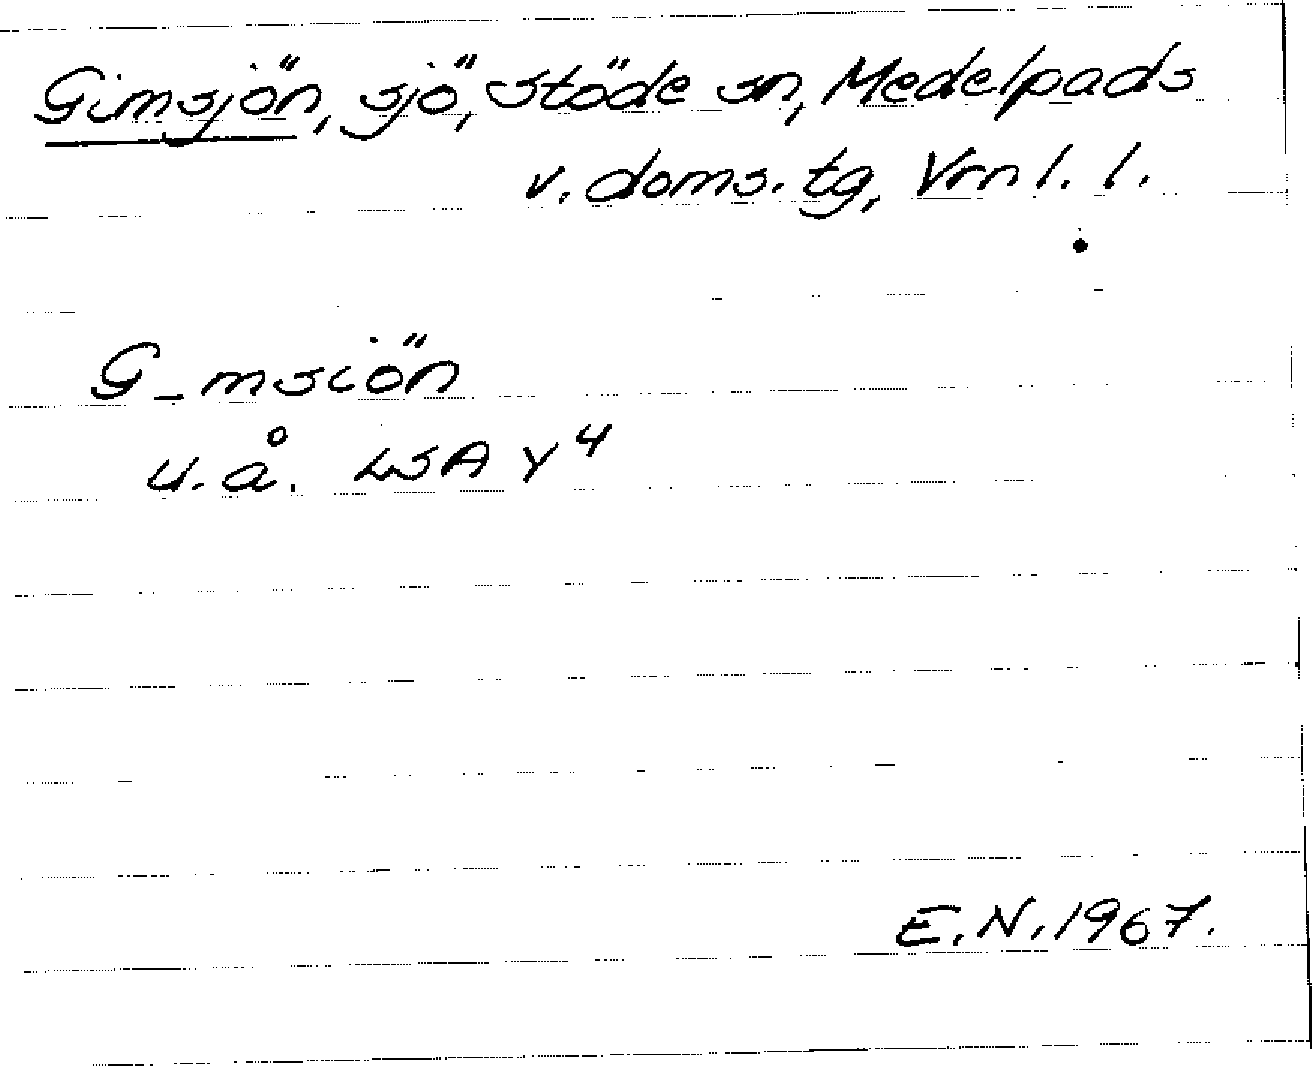 Gimsjön, sjö, Stöde sn, Medelpads
v. doms. tg, Vrnl. l.
G_msiön
u.å. LSA Y4
E.N. 1967.